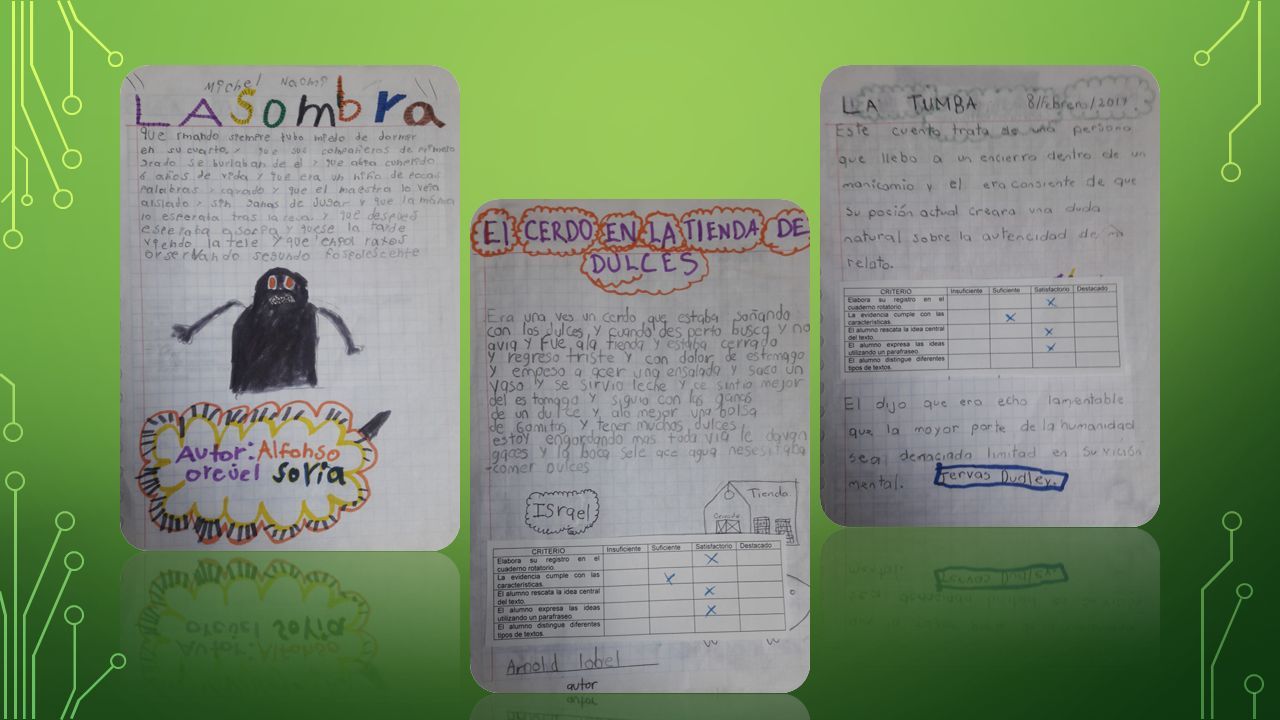 Michel Naomi
LA Sombra
que rmando siempre tubo miedo de dormir
en su cuarto y que sus compañeros de primero
grado se burlaban de el y que abia cunplido
6 años de vida y que era un niño de pocas
palabras y carado y que el maestro lo veia
aislado y sin ganas de Jugar y que la mama
lo esperaba tras la reja y que despues
esperaba a sorpa y quese la tarde
viendo la tele y que enpoi ratos
orservando segundo fospolescente
Autor: Alfonso
orcüel soria
El CERDO EN LA TIENDA DE
DULCES
Era una ves un cerdo que estaba soñando
con los dulces y cuando des perto busco y no
avia y fue ala tienda y estaba cerrado
y regreso triste y con dolor de estomago
y empeso a acer una ensalada y saco un
vaso y se sirvio leche y ce sintio mejor
del es tomago y siguio con las ganas
de un dulce y alo mejor una bolsa
de Gomitas y tener muchos dulces
estoy engordando mas toda via le davan
gaces y la boca sele ace agua nesesitaba
comer dulces
Tienda
Cerrado
ISrael
CRITERIO Insuficiente Suficiente Satisfactorio Destacado
Elabora su registro en el
cuaderno rotatorio. X
La evidencia cumple con las
características. X
El alumno rescata la idea central
del texto. X
El alumno expresa las ideas
utilizando un parafraseo X
El alumno distingue diferentes
tipos de textos.
Arnold lobel
autor
LA TUMBA 8/febrero/2017.
Este cuento trata de una persona
que llebo a un encierro dentro de un
manicomio y el era consiente de que
su poción actual creara una duda
natural sobre la autencidad de mi
relato.
CRITERIO Insuficiente Suficiente Satisfactorio Destacado
Elabora su registro en el
cuaderno rotatorio. X
La evidencia cumple con las
características. X
El alumno rescata la idea central
del texto. X
El alumno expresa las ideas
utilizando un parafraseo. X
El alumno distingue diferentes
tipos de textos.
El dijo que era echo lamentable
que la mayor parte de la humanidad
sea demaciada limitad en su vición
mental. Jervas Dudley.